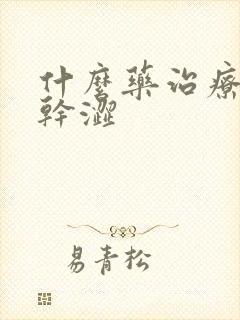 什麼藥治療
幹澀
易青松